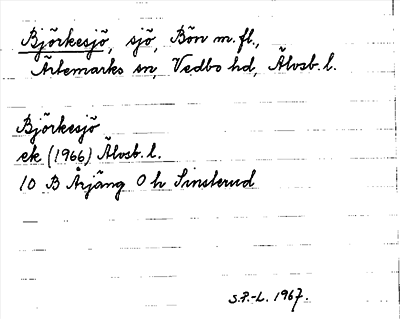 Björkesjö, sjö, Bön m.fl.,
Ärtemarks sn, Vedbo hd, Älvsb. l.
Björkesjö
ek (1966) Älvsb. l.
10 B Årjäng 0 h Sinsterud
S.P.-L. 1967.